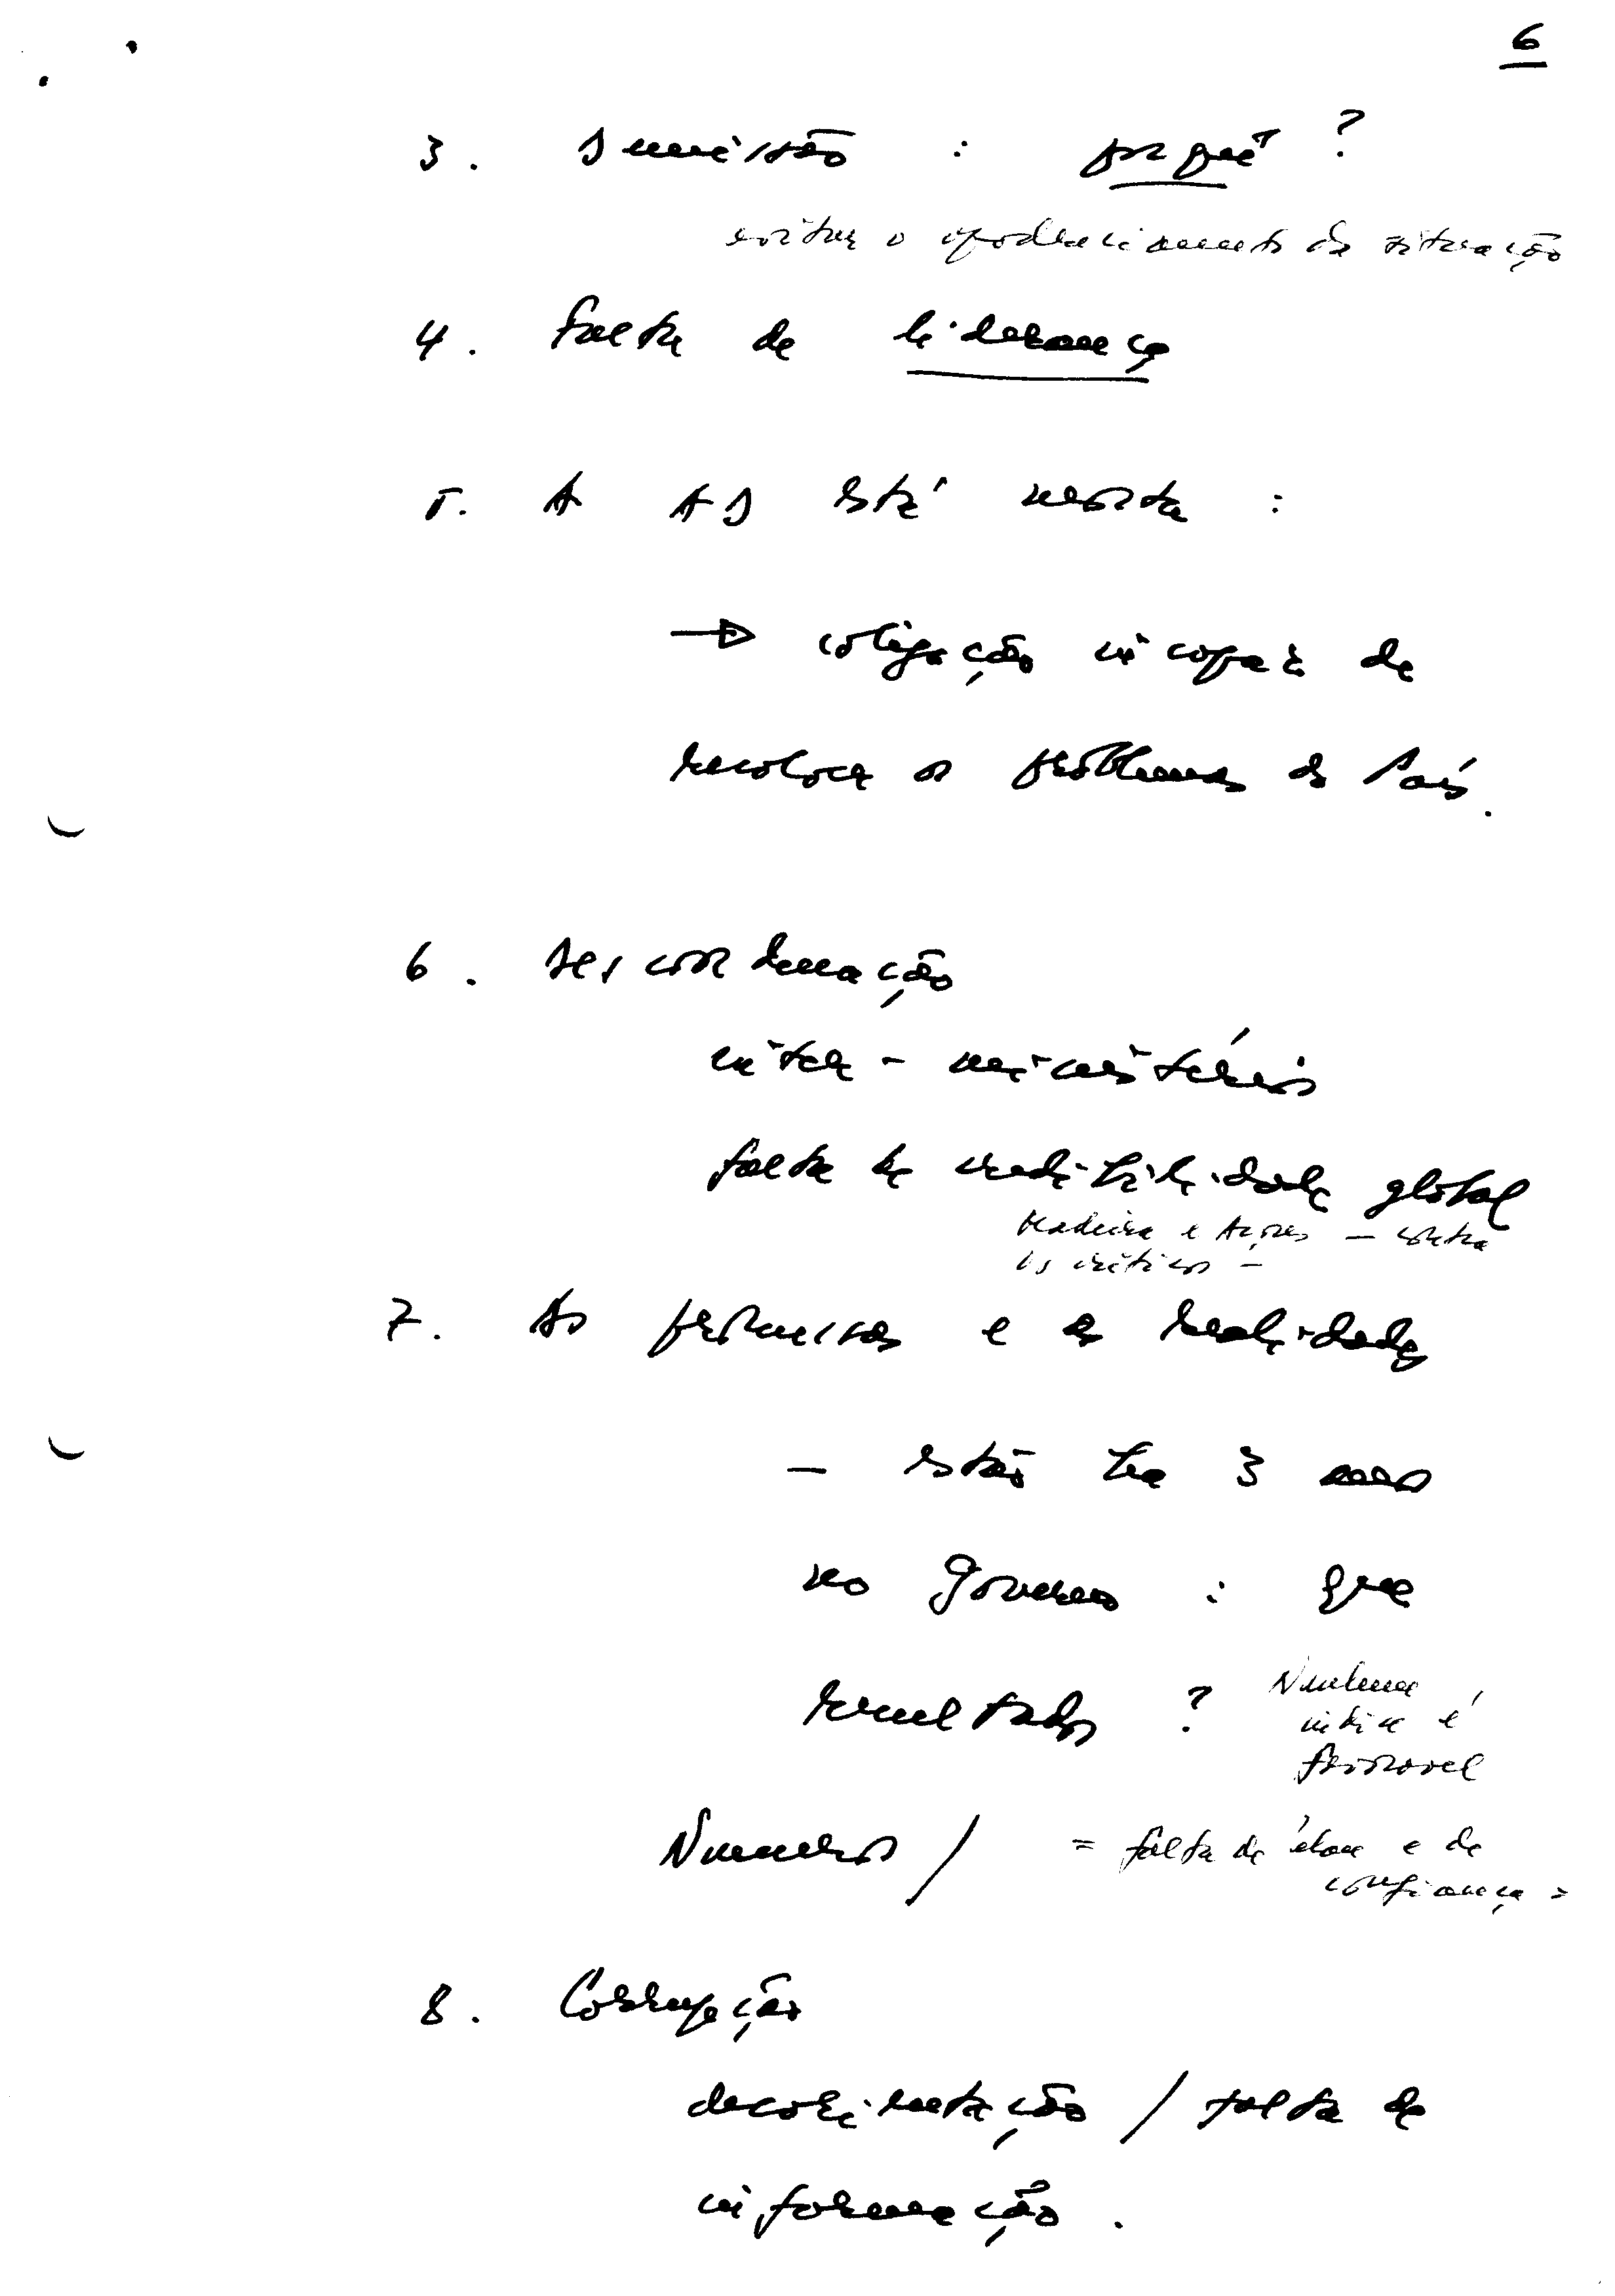 6
3. Demissão : porquê ?
evitar o apodrecimento da situação
4. Falta de liderança
5. A AD está morta :
→ coligação incapaz de
resolver os problemas do País.
6. Descoordenação
inter-ministérios
falta de credibilidade global
Madeira e Açores — contra
os críticos —
7. As promessas e as realidades
— estão há 3 anos
no Governo : que
resultados ? Nenhum
índice é
favorável
Números / = falta de élan e de
confiança =
8. Corrupção
desorientação / falta de
informação.